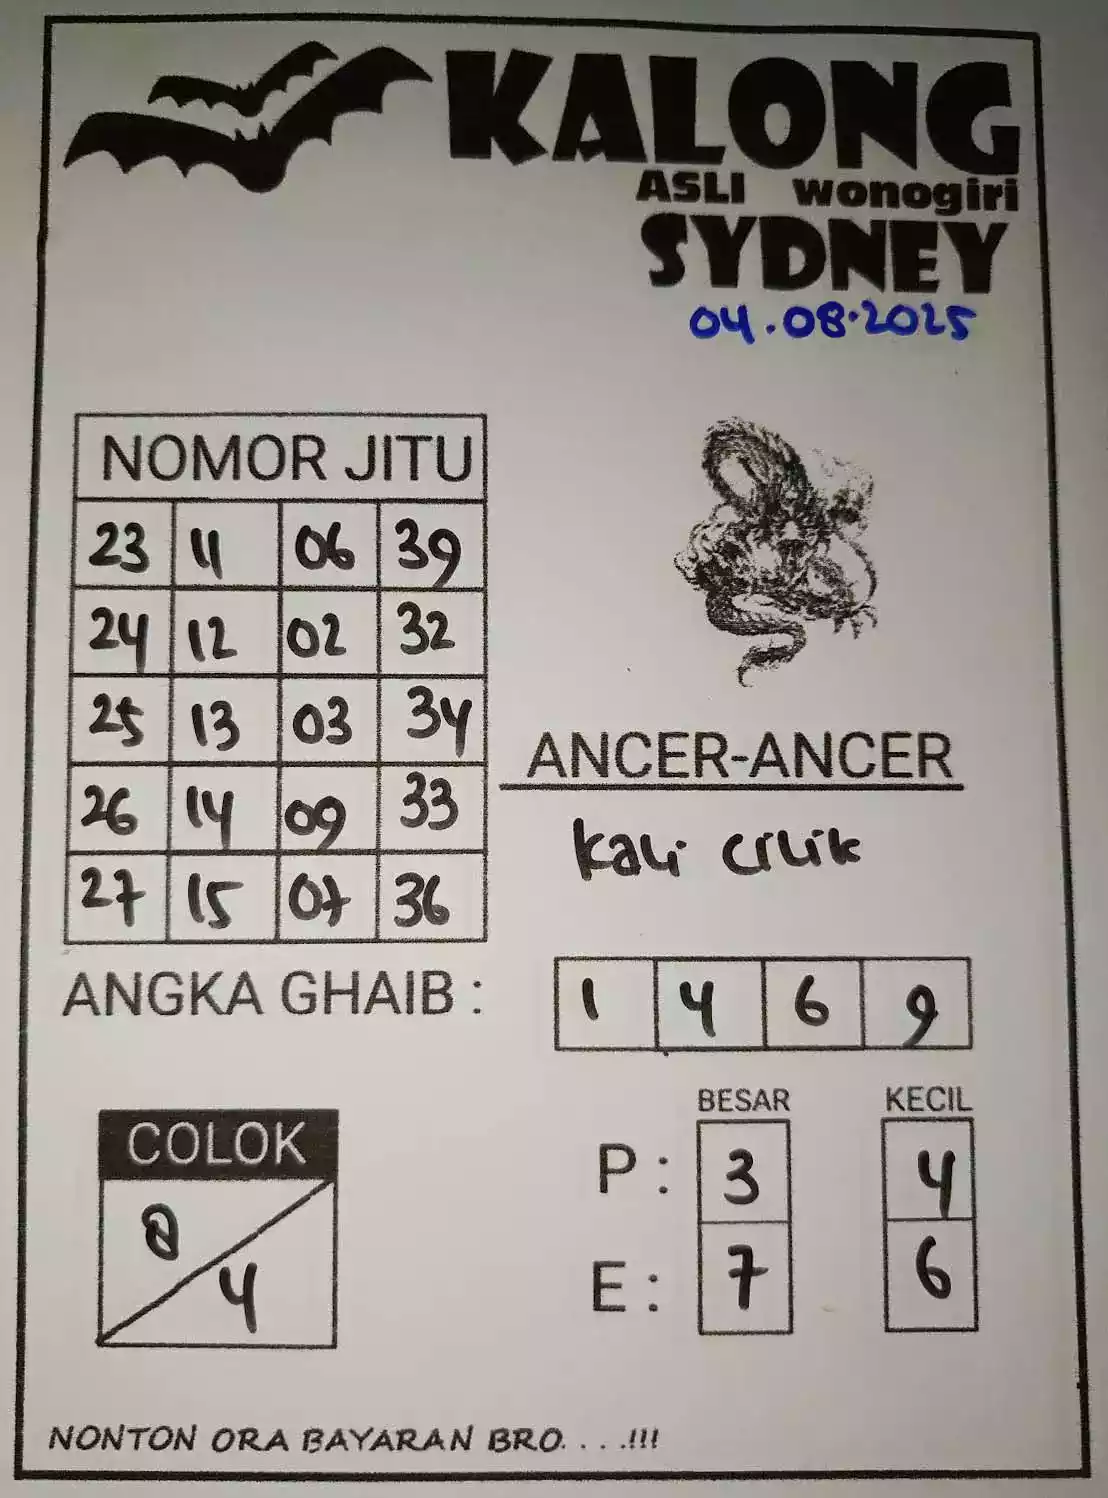 KALONG
ASLI wonogiri
SYDNEY
04.08.2025
NOMOR JITU
23 11 06 39
24 12 02 32
25 13 03 34
26 14 09 33
27 15 07 36
ANCER-ANCER
kali cilik
ANGKA GHAIB : 1 4 6 9
COLOK
4
BESAR KECIL
P : 3 4
E : 7 6
NONTON ORA BAYARAN BRO. . . .!!!